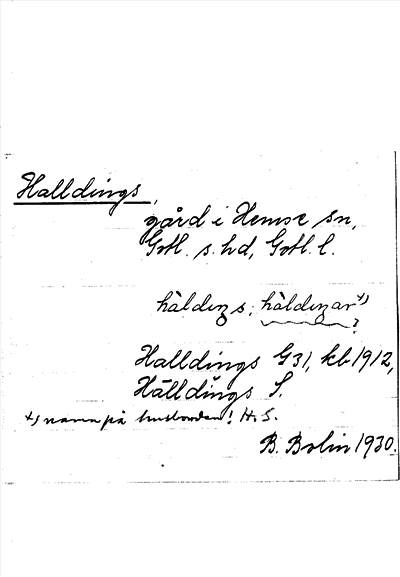 Halldings,
gård i Hemse sn,
Gotl. s. hd, Gotl. l.
häldiŋs, häldiŋar +)
?
Halldings G31, kb 1912,
Hälldings S.
+) namn på husbonden! H. S.
B. Bolin 1930.